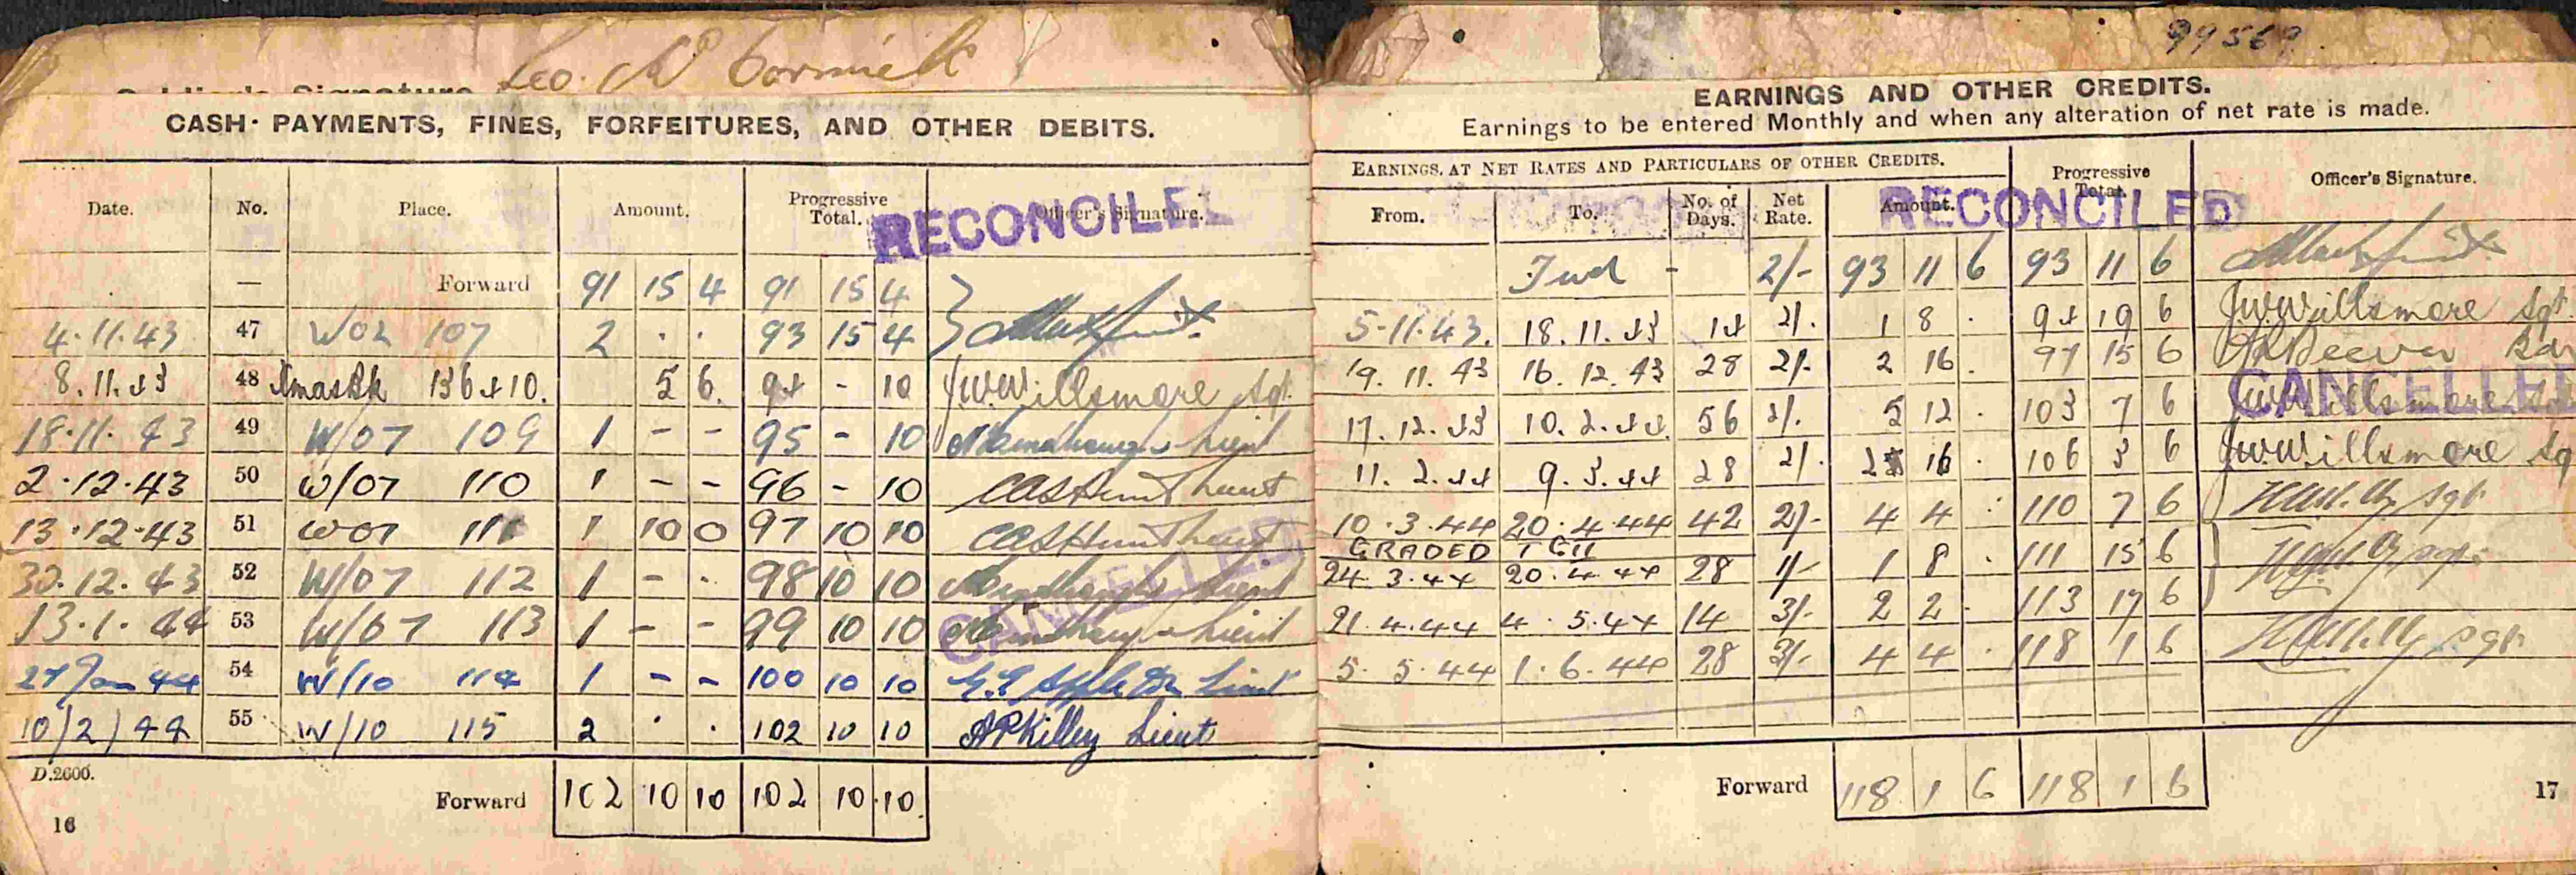 99569.
Soldier's Signature Leo. McCormick
CASH PAYMENTS, FINES, FORFEITURES, AND OTHER DEBITS.
Date. No. Place. Amount. Progressive Total. Officer's Signature.
RECONCILE
— Forward 91 15 4 91 15 4
4.11.43 47 W02 107 2 . . 93 15 4
8.11.43 48 Xmas Bk 13 6410. 5 6. 94 - 10 J.W.Willsmore Sgt.
18.11.43 49 W/07 109 1 - - 95 - 10 Lieut
2.12.43 50 W/07 110 1 - - 96 - 10 Lieut
13.12.43 51 W07 111 1 10 0 97 10 10 Lieut
30.12.43 52 W/07 112 1 - . 98 10 10 Lieut
13.1.44 53 W/07 113 1 - - 99 10 10 Lieut
CANCELLED
27 Jan 44 54 W/10 114 1 - - 100 10 10 Lieut
10/2/44 55 W/10 115 2 . . 102 10 10 APKilley Lieut
D.2600.
Forward 102 10 10 102 10 10
16
EARNINGS AND OTHER CREDITS.
Earnings to be entered Monthly and when any alteration of net rate is made.
EARNINGS AT NET RATES AND PARTICULARS OF OTHER CREDITS.
From. To. No. of Days. Net Rate. Amount. Progressive Total. Officer's Signature.
RECONCILED
Fwd - 2/- 93 11 6 93 11 6
5-11.43. 18.11.43 14 2/. 1 8 . 94 19 6 J.W.Willsmore Sgt.
19.11.43 16.12.43 28 2/. 2 16 . 97 15 6
CANCELLED
17.12.43 10.2.44. 56 2/. 5 12 . 103 7 6 J.W.Willsmore
11.2.44 9.3.44 28 2/. 2 16 . 106 3 6 J.W.Willsmore Sg
10.3.44 20.4.44 42 2/- 4 4 . 110 7 6 Sgt
GRADED I GII
24.3.44 20.4.44 28 1/- 1 8 . 111 15 6 Sgt.
21.4.44 4.5.44 14 3/- 2 2 . 113 17 6
5.5.44 1.6.44 28 3/- 4 4 . 118 1 6 Sgt.
Forward 118 1 6 118 1 6
17